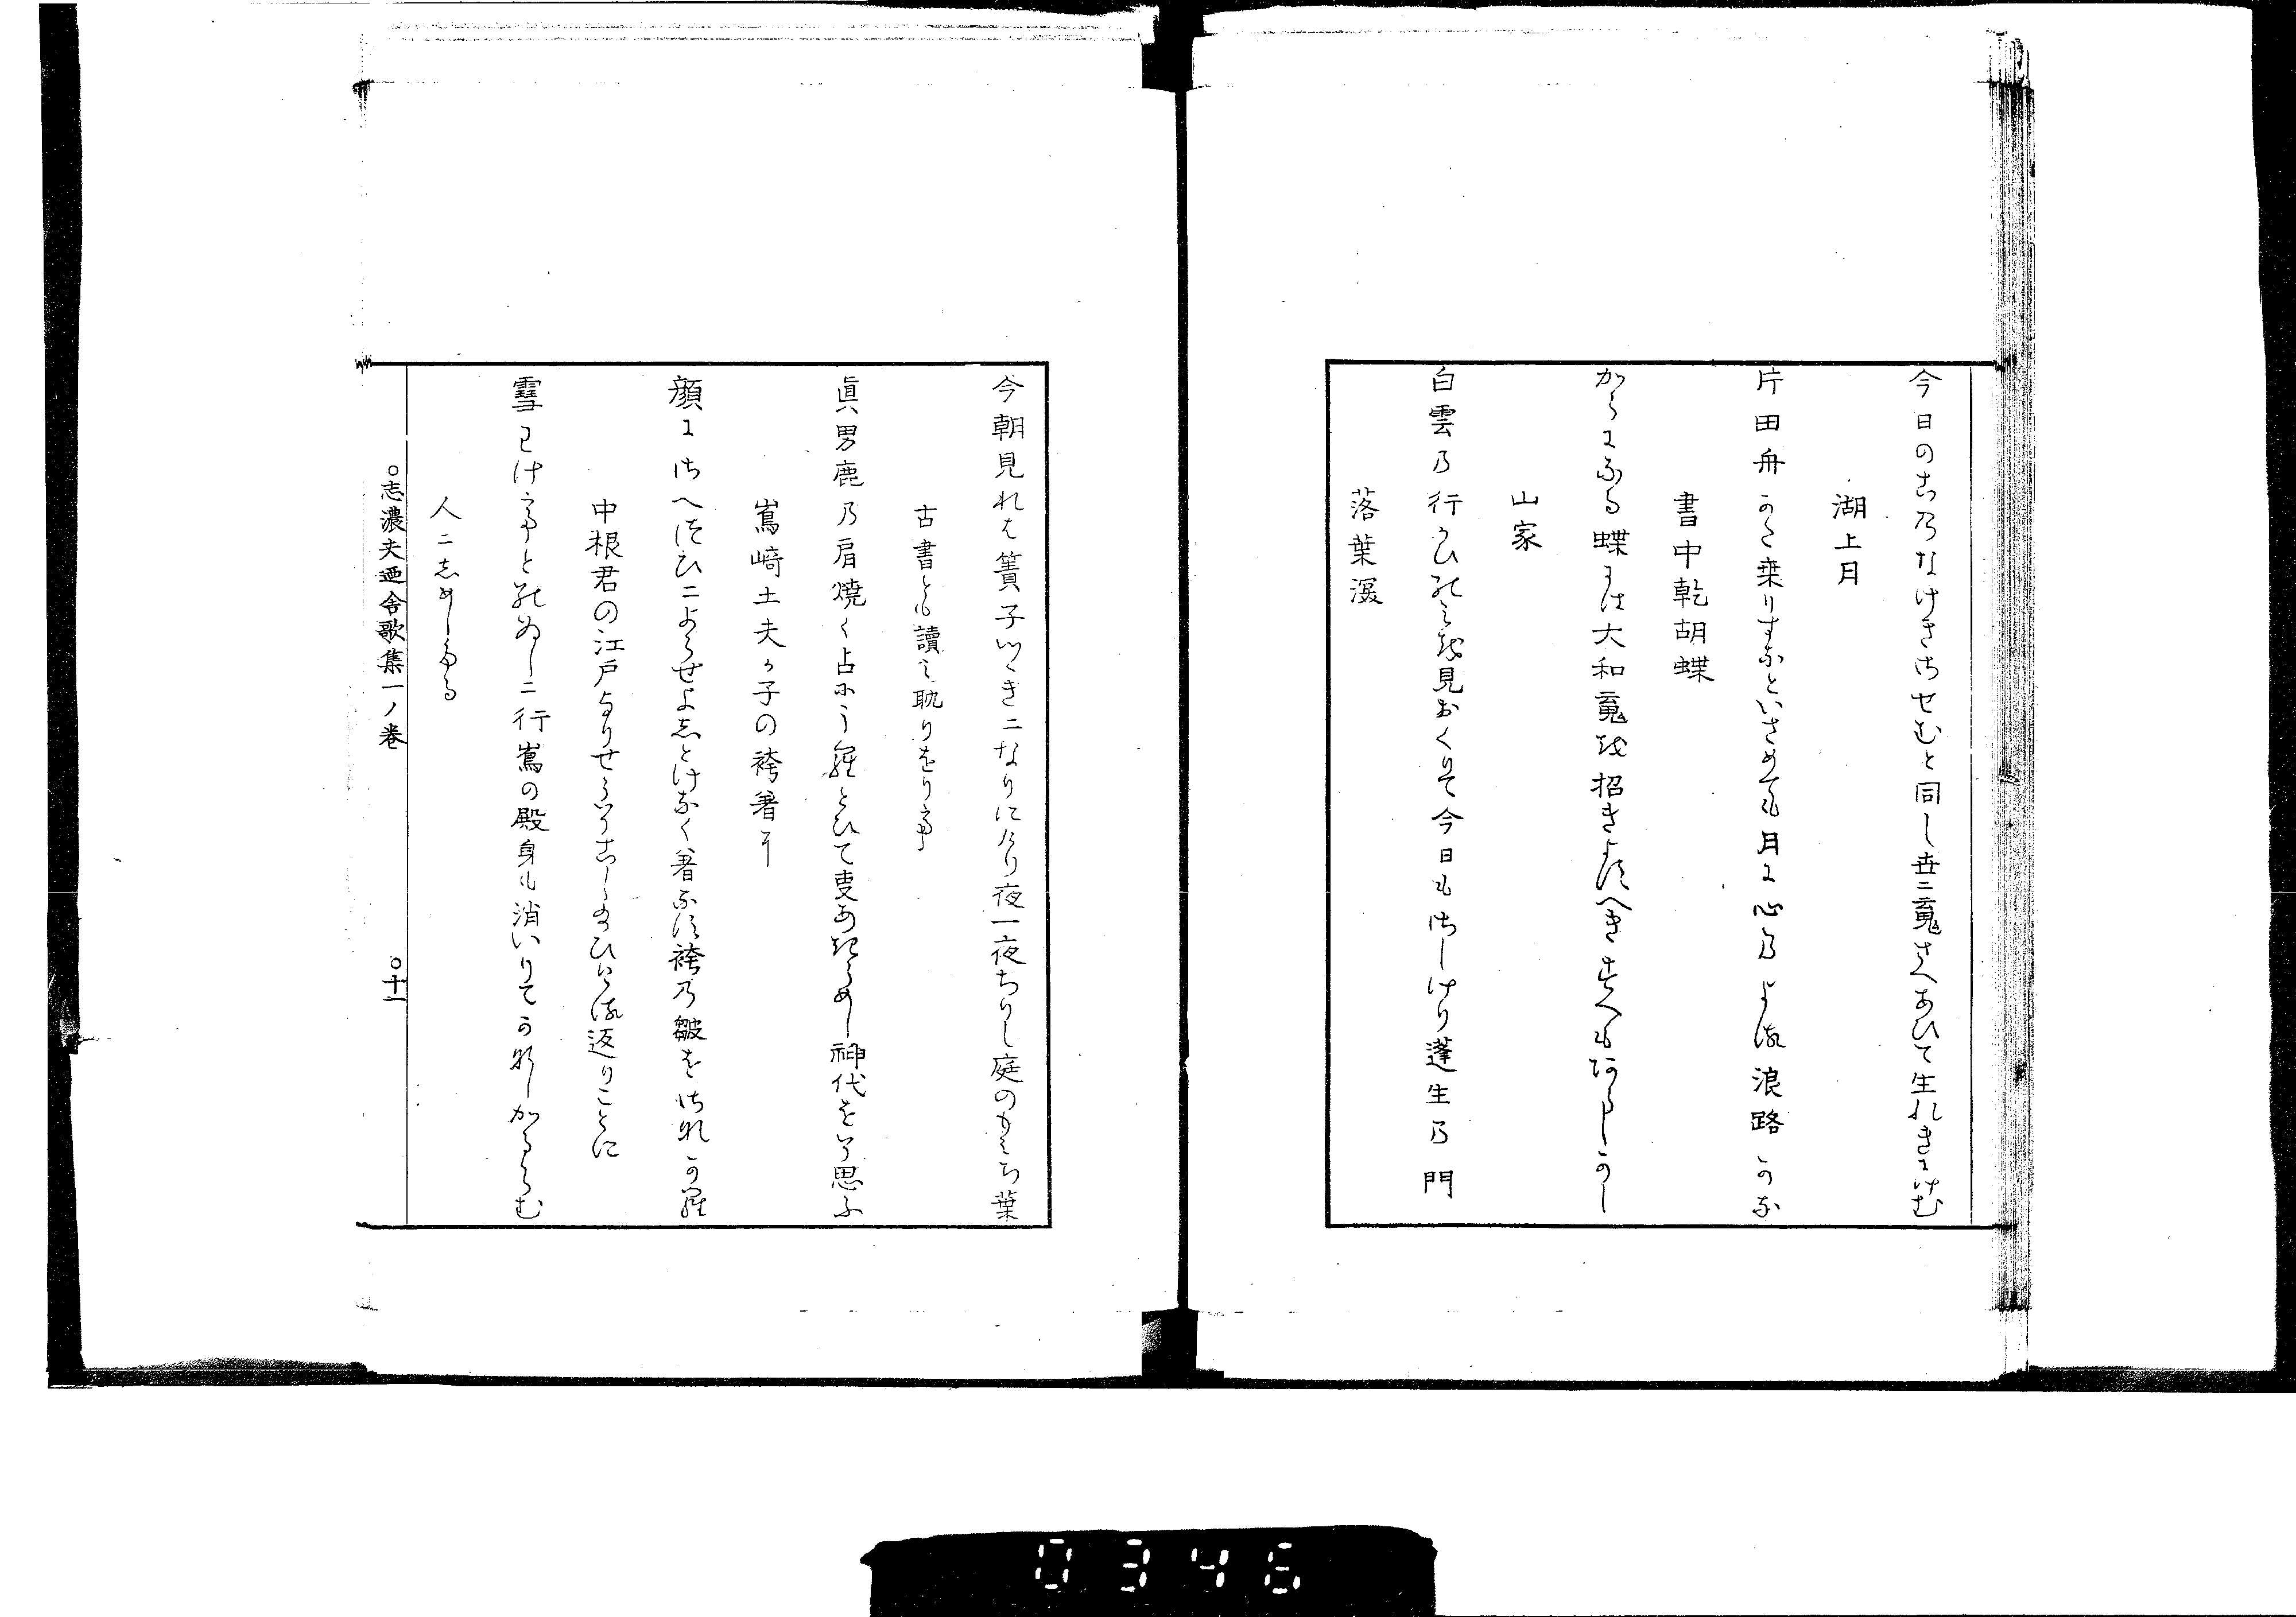 今日の古乃なけきせむと同し世ニ䰟さへあひて生れきにけむ
湖上月
片田舟かく乗りすなといさめても月に心乃よる浪路かな
書中乾胡蝶
からになる蝶には大和䰟を招きよすへきすへもあらしかし
山家
白雲乃行かひのミを見おくりて今日もさしけり蓬生乃門
落葉深
今朝見れは簀子いつきニなりにけり夜一夜ちりし庭のもみち葉
古書とも讀ミ耽りをりて
眞男鹿乃肩焼く占にうらとひて事あきらめし神代をそ思ふ
嶌﨑土夫か子の袴着に
顔にさへつひニよらせよしとけなく着なす袴乃皺をされから
中根君の江戸よりせうそこしたひける返りことに
雪わけてとのゐニ行嶌の殿身も消いりてかなしかるらむ
人ニしめしたる
○志濃夫廼舎歌集一ノ巻
○十一
0346